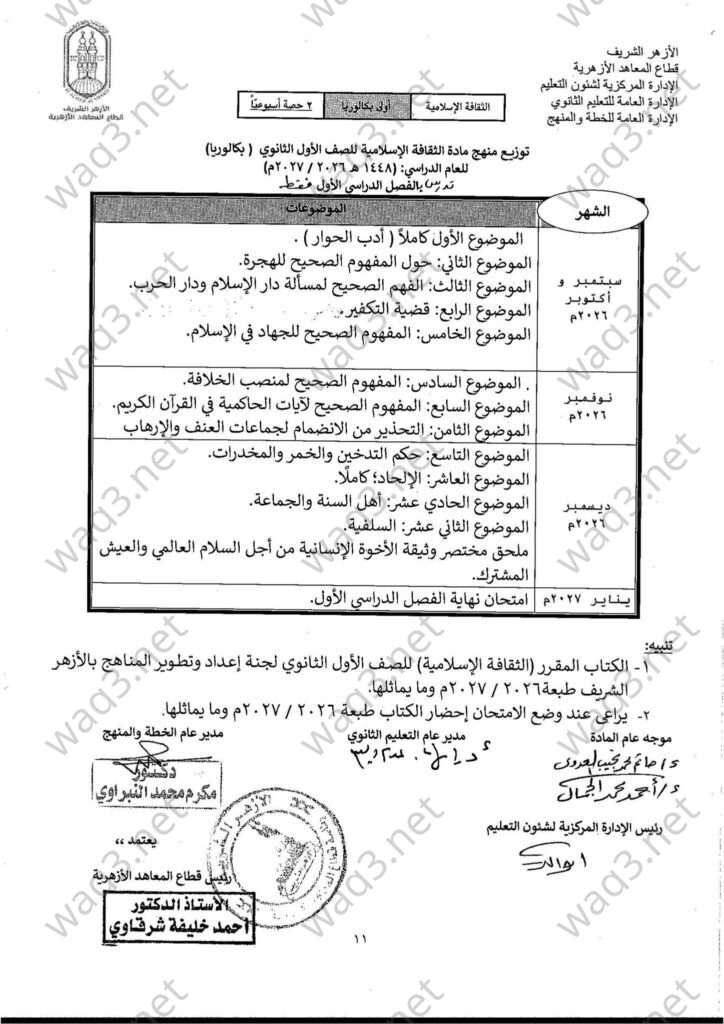 الأزهر الشريف
قطاع المعاهد الأزهرية
الإدارة المركزية لشئون التعليم
الإدارة العامة للتعليم الثانوي
الإدارة العامة للخطة والمنهج
الأزهر الشريف
قطاع المعاهد الأزهرية
الثقافة الإسلامية | أولى بكالوريا | ٢ حصة أسبوعيًا
توزيع منهج مادة الثقافة الإسلامية للصف الأول الثانوي ( بكالوريا)
للعام الدراسي: (١٤٤٨ هـ ٢٠٢٦ / ٢٠٢٧م)
تدرس بالفصل الدراسي الأول فقط
الشهر | الموضوعات
سبتمبر و أكتوبر ٢٠٢٦م
الموضوع الأول كاملاً ( أدب الحوار ) .
الموضوع الثاني: حول المفهوم الصحيح للهجرة.
الموضوع الثالث: الفهم الصحيح لمسألة دار الإسلام ودار الحرب.
الموضوع الرابع: قضية التكفير.
الموضوع الخامس: المفهوم الصحيح للجهاد في الإسلام.
نوفمبر ٢٠٢٦م
. الموضوع السادس: المفهوم الصحيح لمنصب الخلافة.
الموضوع السابع: المفهوم الصحيح لآيات الحاكمية في القرآن الكريم.
الموضوع الثامن: التحذير من الانضمام لجماعات العنف والإرهاب
ديسمبر ٢٠٢٦م
الموضوع التاسع: حكم التدخين والخمر والمخدرات.
الموضوع العاشر: الإلحاد؛ كاملًا.
الموضوع الحادي عشر: أهل السنة والجماعة.
الموضوع الثاني عشر: السلفية.
ملحق مختصر وثيقة الأخوة الإنسانية من أجل السلام العالمي والعيش
المشترك.
يناير ٢٠٢٧م | امتحان نهاية الفصل الدراسي الأول.
تنبيه:
١- الكتاب المقرر (الثقافة الإسلامية) للصف الأول الثانوي لجنة إعداد وتطوير المناهج بالأزهر
الشريف طبعة٢٠٢٦ / ٢٠٢٧م وما يماثلها.
٢- يراعى عند وضع الامتحان إحضار الكتاب طبعة ٢٠٢٦ / ٢٠٢٧م وما يماثلها.
موجه عام المادة
مدير عام التعليم الثانوي
مدير عام الخطة والمنهج
دكتور
مكرم محمد النبراوي
رئيس الإدارة المركزية لشئون التعليم
يعتمد ،،
رئيس قطاع المعاهد الأزهرية
الأستاذ الدكتور
أحمد خليفة شرقاوي
١١
waq3.net